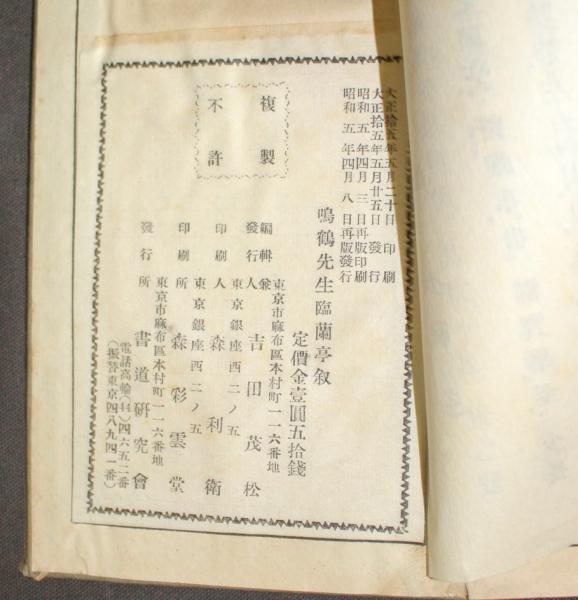 大正拾五年五月二十日 印刷
大正拾五年五月廿五日 發行
昭和五年四月三日再版印刷
昭和五年四月八日再版發行
鳴鶴先生臨蘭亭叙
定價金壹圓五拾錢
複製
不許
東京市麻布區本村町一一六番地
編輯兼
發行人 吉田茂松
東京銀座西二ノ五
印刷人 森利衛
東京銀座西二ノ五
印刷所 森彩雲堂
東京市麻布區本村町一一六番地
發行所 書道研究會
電話高輪(44)四六五二番
(振替東京四八九四一番)